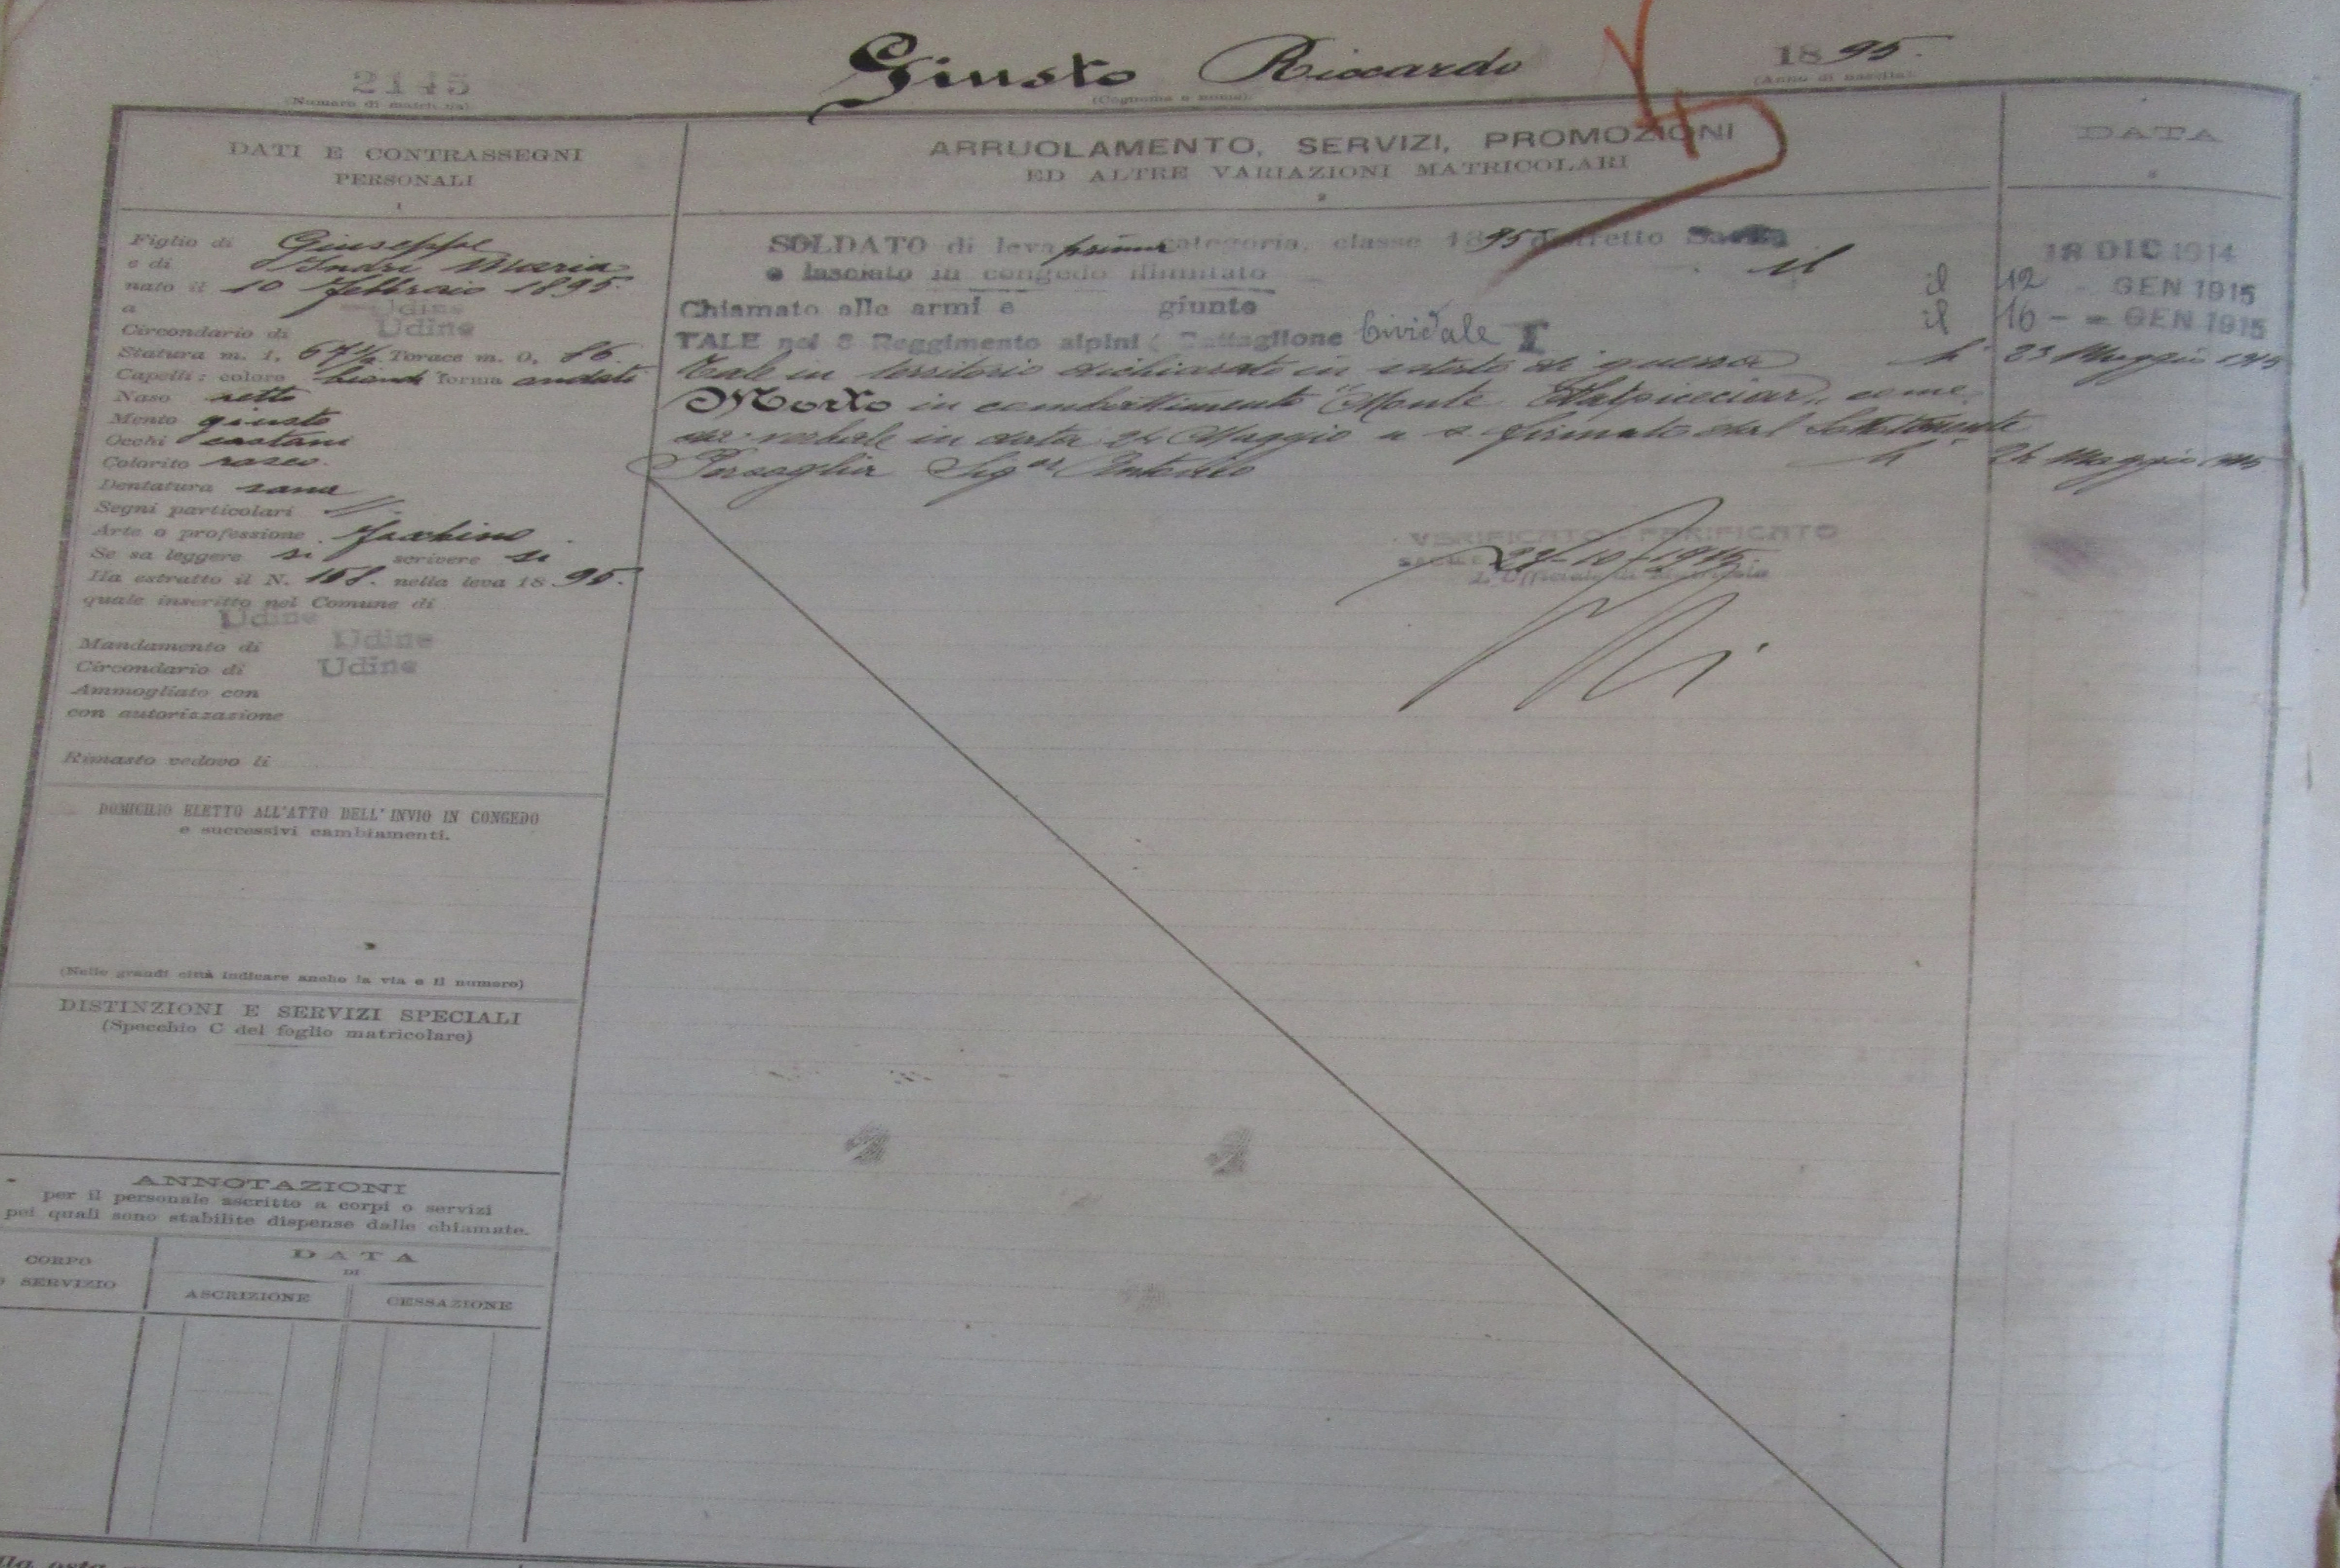 2145
(Numero di matricola)
Giusto Riccardo
(Cognome e nome)
1895.
(Anno di nascita)
DATI E CONTRASSEGNI
PERSONALI
1
Figlio di Giuseppe
e di Indri Maria
nato il 10 febbraio 1895.
a Udine
Circondario di Udine
Statura m. 1, 67½ Torace m. 0, 86.
Capelli: colore biondi forma ondati
Naso retto
Mento giusto
Occhi castani
Colorito roseo.
Dentatura sana
Segni particolari //
Arte o professione Facchino
Se sa leggere si scrivere si
Ha estratto il N. 158. nella leva 1895.
quale inscritto nel Comune di
Udine
Mandamento di Udine
Circondario di Udine
Ammogliato con
con autorizzazione
Rimasto vedovo li
DOMICILIO ELETTO ALL'ATTO DELL'INVIO IN CONGEDO
e successivi cambiamenti.
(Nelle grandi città indicare anche la via e il numero)
DISTINZIONI E SERVIZI SPECIALI
(Specchio C del foglio matricolare)
ANNOTAZIONI
per il personale ascritto a corpi o servizi
pei quali sono stabilite dispense dalle chiamate.
CORPO
O SERVIZIO
DATA
DI
ASCRIZIONE
CESSAZIONE
ARRUOLAMENTO, SERVIZI, PROMOZIONI
ED ALTRE VARIAZIONI MATRICOLARI
2
DATA
3
SOLDATO di leva prima categoria, classe 1895 distretto Sacile
e lasciato in congedo illimitato il 18 DIC 1914
Chiamato alle armi e giunto il 12 GEN 1915
TALE nel 8 Reggimento alpini (Battaglione Cividale il 16 - - GEN 1915
Tale in territorio dichiarato in istato di guerra li 23 Maggio 1915
Morto in combattimento "Monte come
da verbale in data 24 Maggio a s. firmato dal Sottotenente
Sig.or Antonio li 24 Maggio 1915.
VERIFICATO - PARIFICATO
L'Ufficiale di Matricola